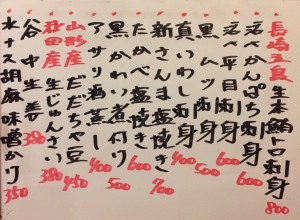 長崎五島 生本鮪トロ刺身 800
活〆かんぱち刺身 600
活〆平目刺身 600
黒ムツ刺身 500
真いわし刺身 400
新さんま塩焼き 700
たかべ塩焼き 600
黒かわい煮付け 500
アサリ酒蒸し 400
山形産 だだちゃ豆 450
秋田産 生じゅんさい 380
谷中生姜 380
水ナス胡麻味噌かけ 350